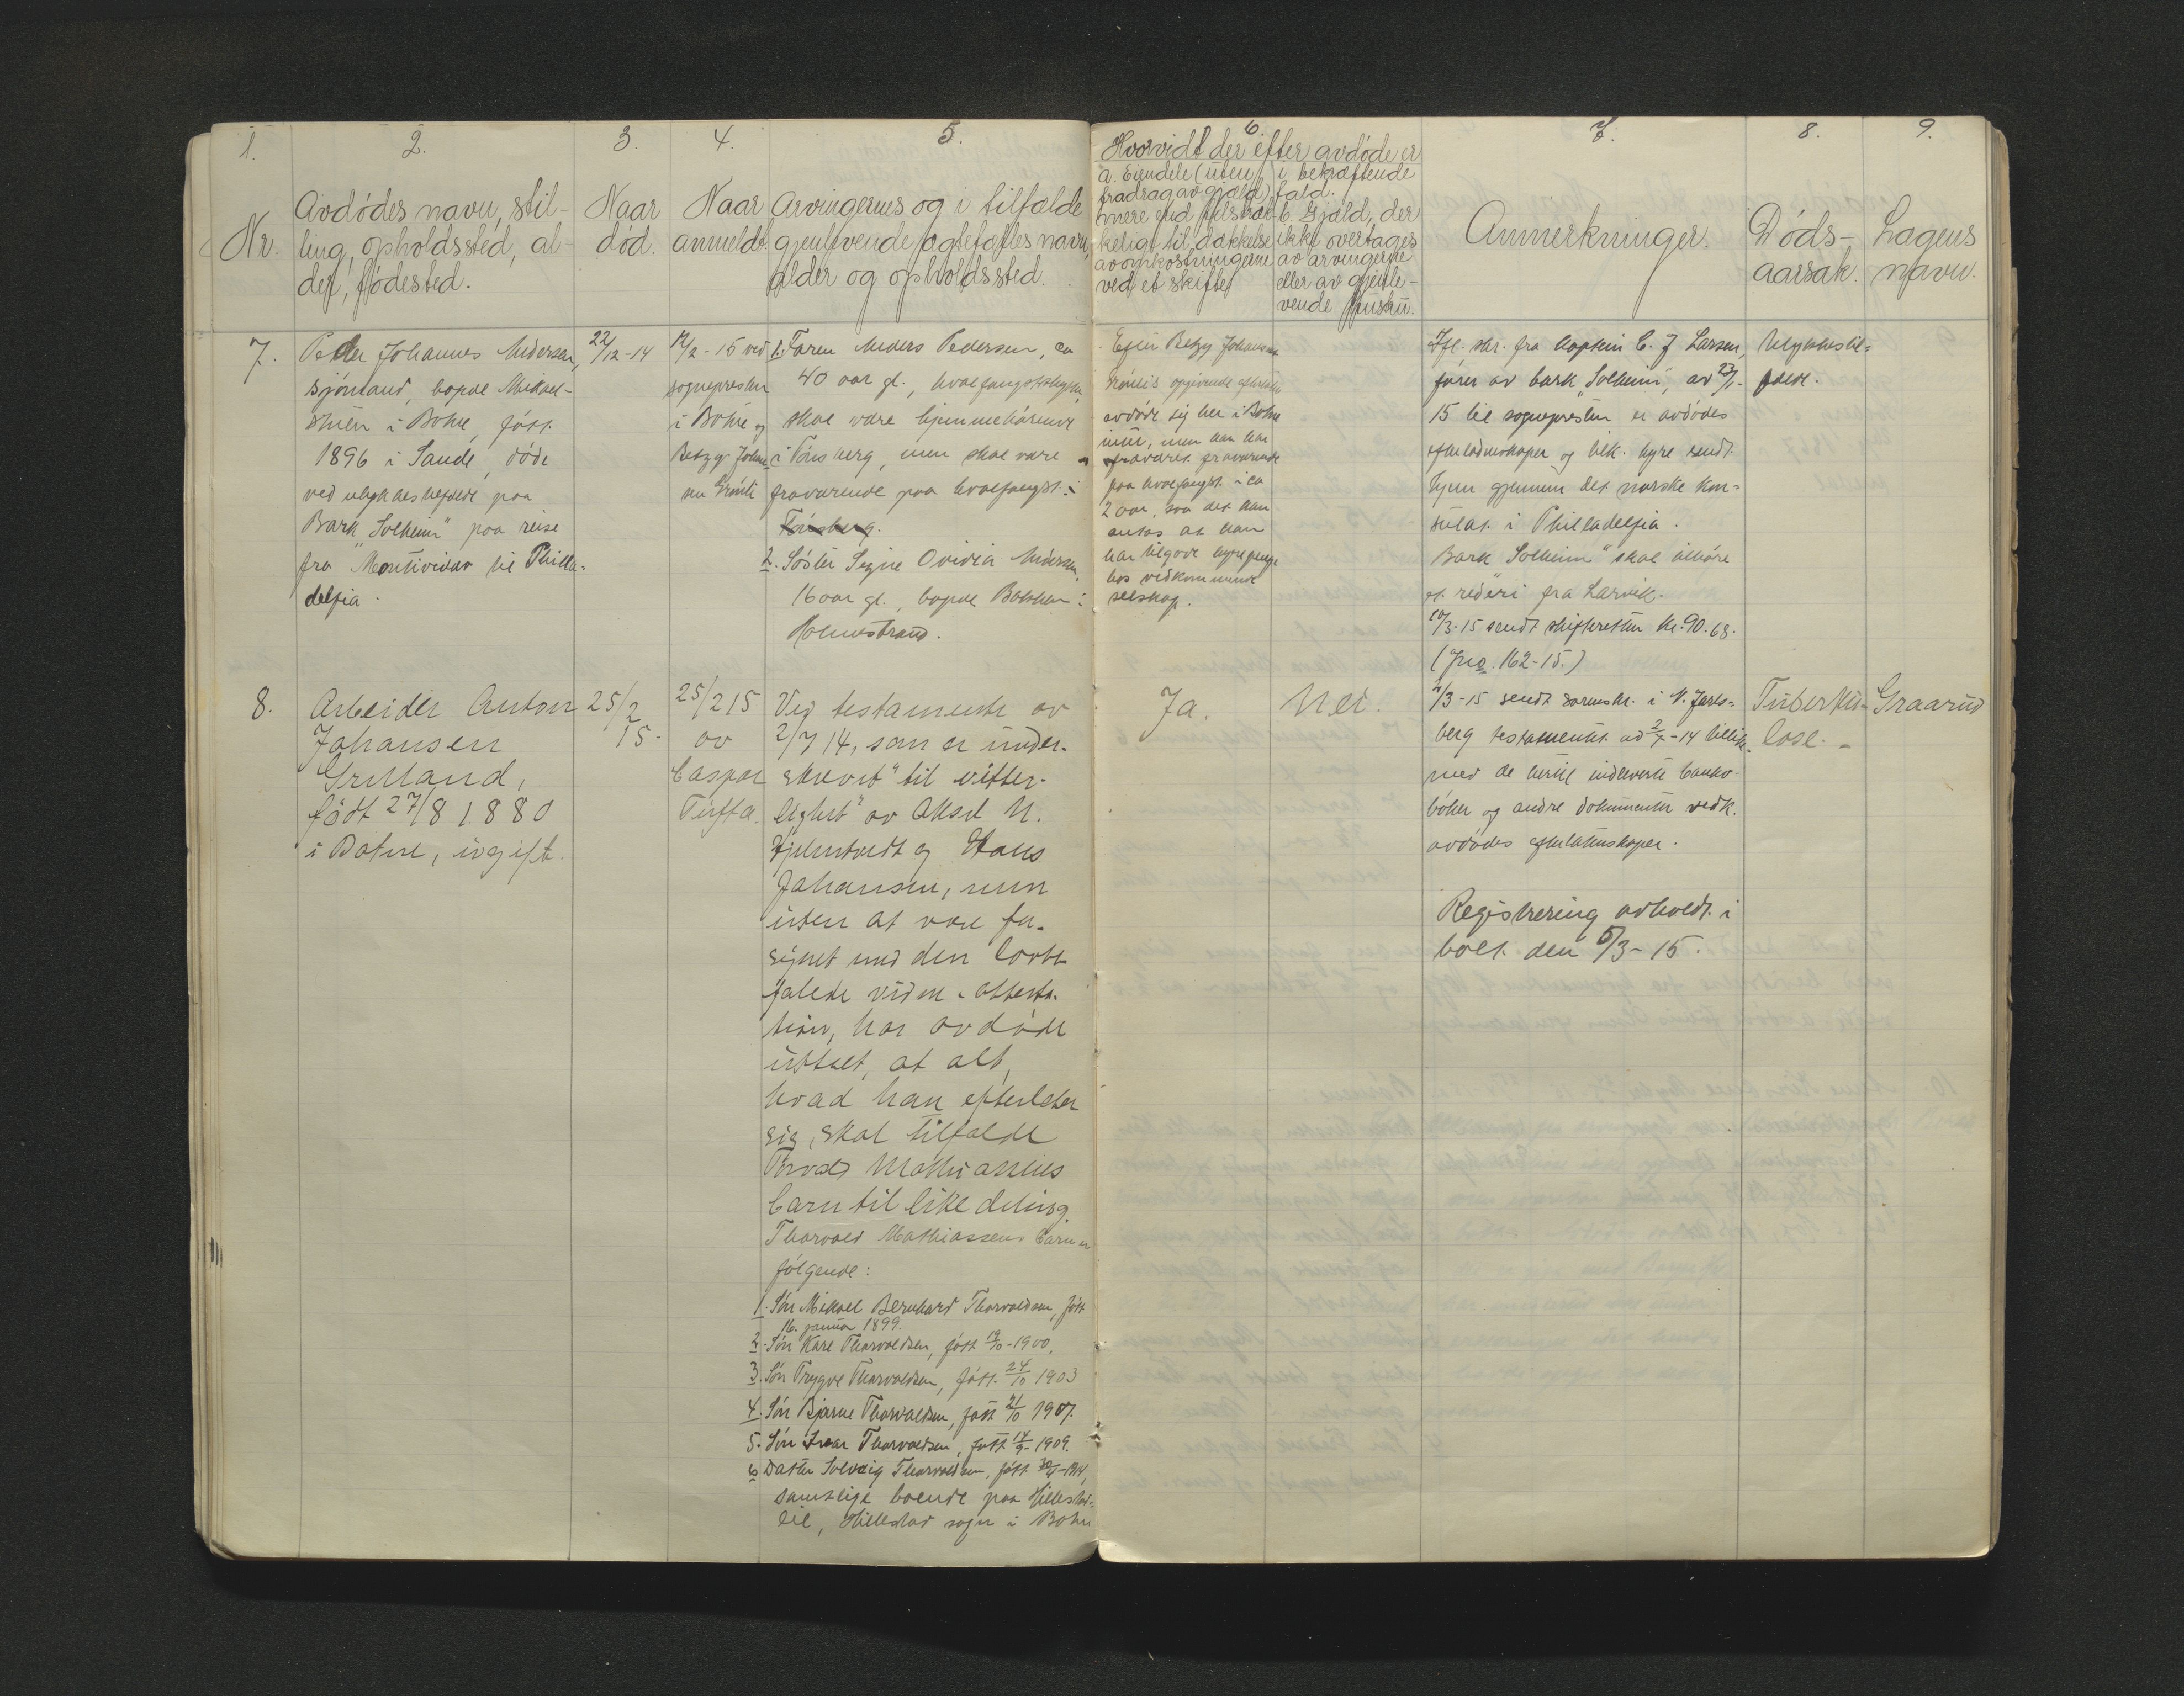 1.
2.
3.
4.
5.
6.
7.
8.
9.
Nr.
Avdödes navn, stil-
ling, opholdssted, al-
der, födested.
Naar
död.
Naar
anmeldt.
Arvingernes og i tilfælde
gjenlevende ægtefælles navn,
alder og opholdssted.
Hvorvidt der efter avdöde er
a. Eiendele (uten
fradrag av gjæld)
mere end tilstræk-
kelig til dækkelse
av omkostningerne
ved et skifte
i bekræftende
fald.
b. Gjæld, der
ikke overtages
av arvingerne
eller av gjenle-
vende hustru.
Anmerkninger.
Döds-
aarsak.
Lægens
navn.
7.
Peder Johannes Andersen,
sjömand, bopæl Mikael-
stuen i Botne, födt
1896 i Sande, döde
ved ulykkestilfælde paa
Bark "Solheim" paa reise
fra "Montividar til Philla-
delfia.
22/12-14
12/2-15 ved
sognepresten
i Botne og
Betzy Johan-
1. Faren Anders Pedersen, ca
40 aar gl., hvalfangstbestyrer,
skal være hjemmehörende
i Tönsberg, men skal være
fraværende paa hvalfangst i
Tönsberg.
2. Söster Signe Ovidia Andersen,
16 aar gl., bopæl Bakken i
Holmestrand.
Efter Betzy Johansens
opgivende efterlot
avdöde sig her i Botne
intet, men han har
fraværet fraværende
paa hvalfangst i ca
2 aar, saa det kan
antas at han
har tilgode hyrepenge
hos vedkommende
selskap.
Ifl. skr. fra Kaptein C. J. Larsen,
förer av bark "Solheim", av 23/1-
15 til sognepresten er avdödes
efterladenskaper og tilk. hyre sendt
hjem gjennem det norske kon-
sulat i Philladelfia.
Bark "Solheim" skal tilhöre
et rederi fra Larvik.
10/3-15 sendt skifteretten Kr. 90.68.
(Jno. 162-15.)
Ulykkestil-
fælde.
8.
Arbeider Anton
Johansen
Grelland,
födt 27/8 1880
i Botne, ugift.
25/2
15-
25/2 15
av
Caspar
Tufta.
Ved testamente av
2/7 14, som er under-
skrevet "til vitter-
lighet" av Aksel M.
Hjelmtvedt og Hans
Johansen, men
uten at være for-
synet med den lovbe-
falede vidne-attesta-
tion, har avdöde
uttalt, at alt,
hvad han efterlater
sig, skal tilfalde
Torvald Mathiassens
barn til like deling.
Thorvald Mathiassens barn er
fölgende:
1. Sön Mikael Bernhard Thorvaldsen, födt
16. januar 1899.
2. Sön Kare Thorvaldsen, födt 19/10-1900,
3. Sön Trygve Thorvaldsen, födt 24/10 1903
4. Sön Bjarne Thorvaldsen, födt 21/10 1907.
5. Sön Ivar Thorvaldsen, födt 14/9-1909.
6 Datter Solveig Thorvaldsen, födt 30/1-1914,
samtlige boende paa Hillestad-
eie, Hillestad sogn i Botne
Ja.
Nei.
2/3-15 sendt sorenskr. i N. Jarls-
berg testamentet av 2/7-14 tillike-
med de hertil indleverte banko-
böker og andre dokumenter vedk.
avdödes efterlatenskaper.
Registrering avholdt i
boet den 5/3-15.
Tuberku-
lose.
Graarud